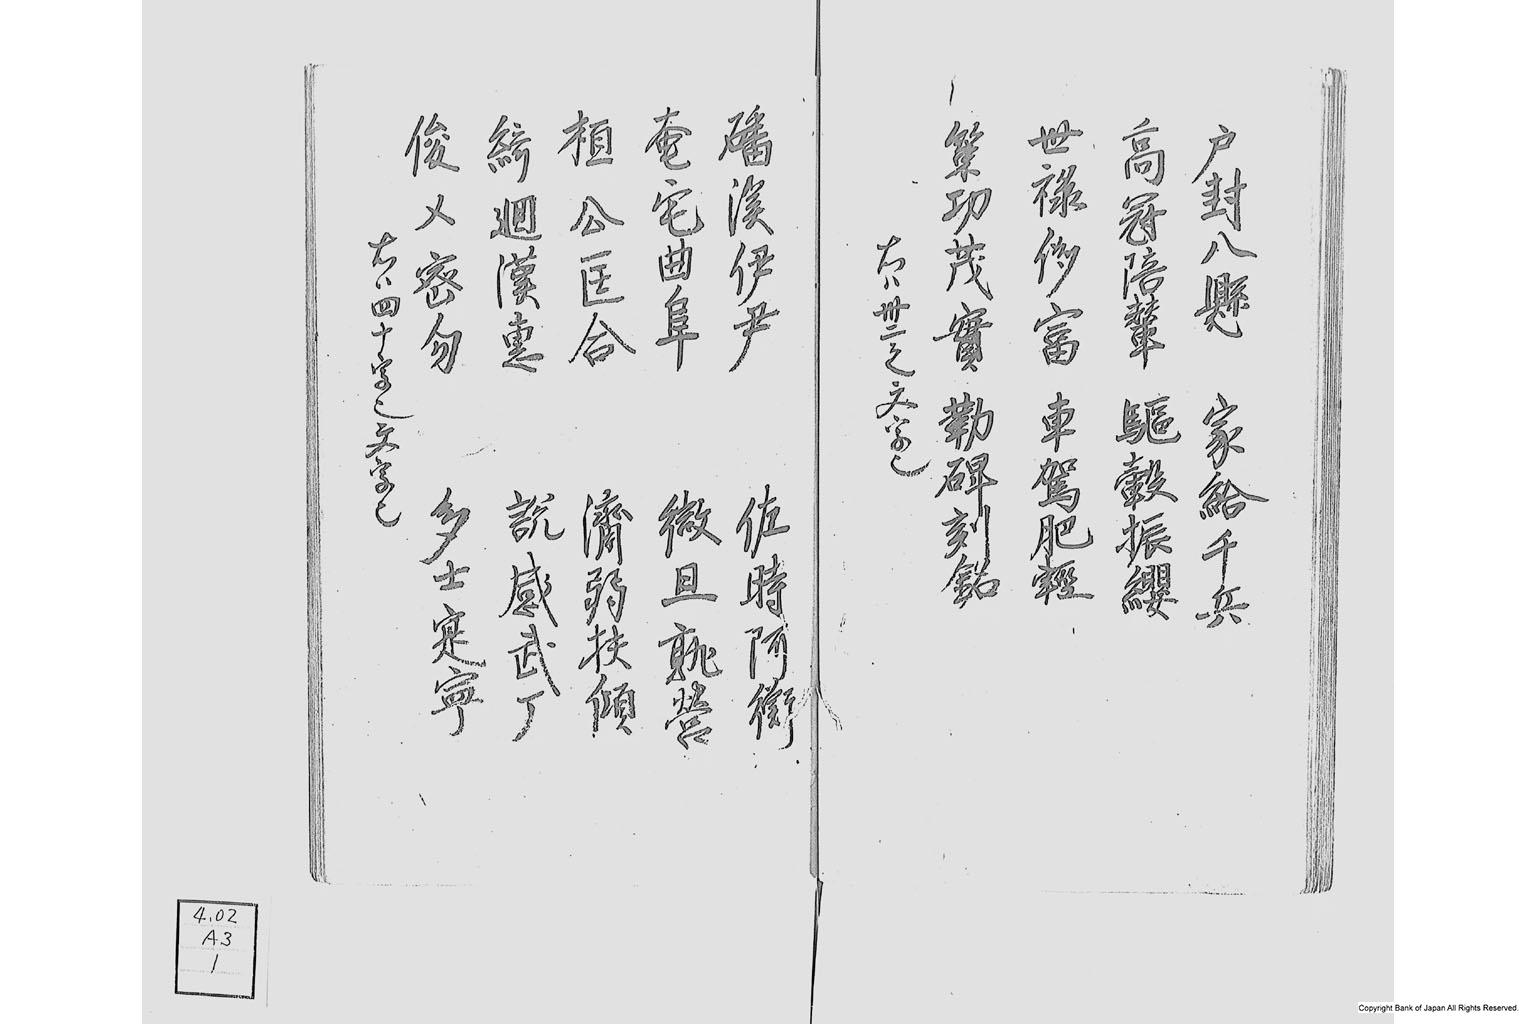 戸封八縣　家給千兵
高冠陪輦　驅轂振纓
世禄侈富　車駕肥輕
策功茂實　勒碑刻銘
右ハ卅二之文字也
磻溪伊尹　佐時阿衡
奄宅曲阜　微旦孰營
桓公匡合　濟弱扶傾
綺迴漢惠　説感武丁
俊乂密勿　多士寔寧
右ハ四十字之文字也
4.02
A3
1
Copyright Bank of Japan All Rights Reserved.